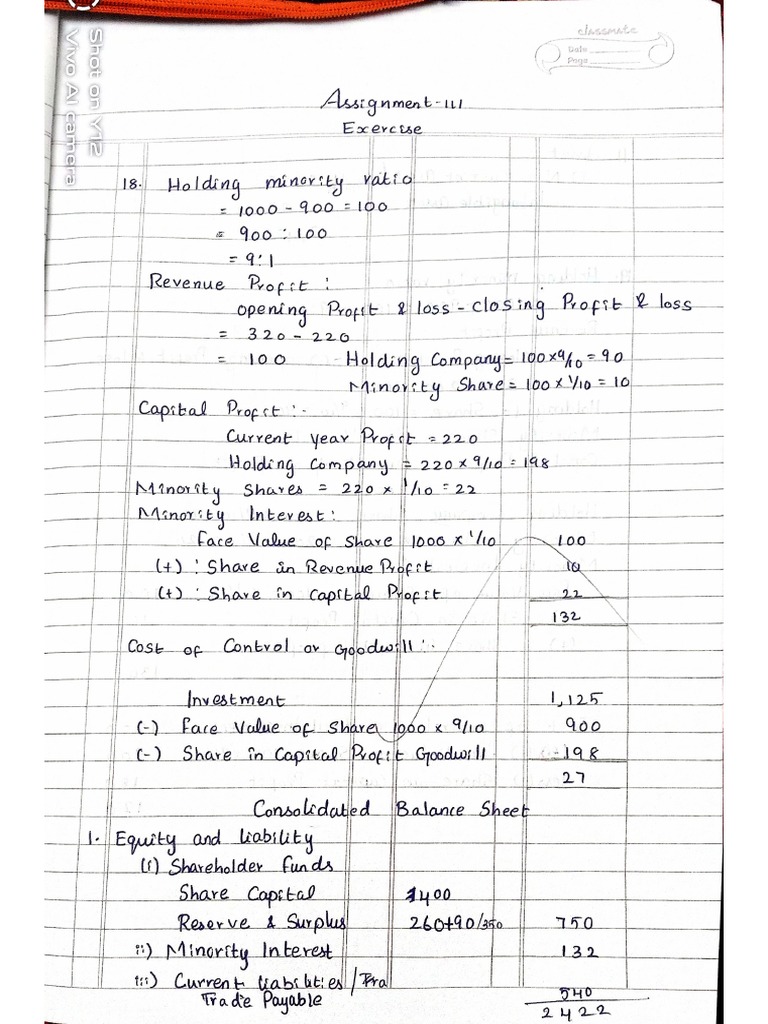 classmate
Date
Page
Shot on Y12
Vivo AI camera
Assignment-III
Exercise
18. Holding minority ratio
= 1000 - 900 = 100
= 900 : 100
= 9:1
Revenue Profit :
opening Profit & loss - closing Profit & loss
= 320 - 220
= 100 Holding Company = 100 x 9/10 = 90
Minority Share = 100 x 1/10 = 10
Capital Profit :-
Current year Profit = 220
Holding Company = 220 x 9/10 = 198
Minority Shares = 220 x 1/10 = 22
Minority Interest :
Face Value of Share 1000 x 1/10 100
(+) : Share in Revenue Profit 10
(+) : Share in Capital Profit 22
132
Cost of Control or Goodwill :-
Investment 1,125
(-) Face Value of Share 1000 x 9/10 900
(-) Share in Capital Profit Goodwill -198
27
Consolidated Balance Sheet
1. Equity and liability
(i) Shareholder funds
Share Capital 1400
Reserve & Surplus 260+90/350 750
ii) Minority Interest 132
iii) Current liabilities / Tra
Trade Payable 540
2422